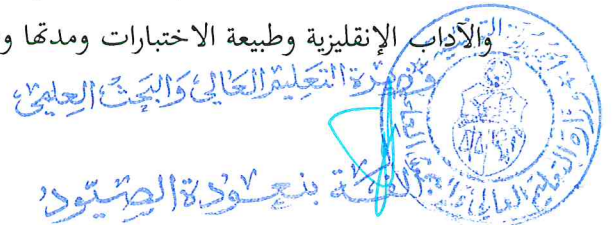 والآداب الإنقليزية وطبيعة الاختبارات ومدتها و
وزيرة التعليم العالي والبحث العلمي
ألفة بنعودة الصيود